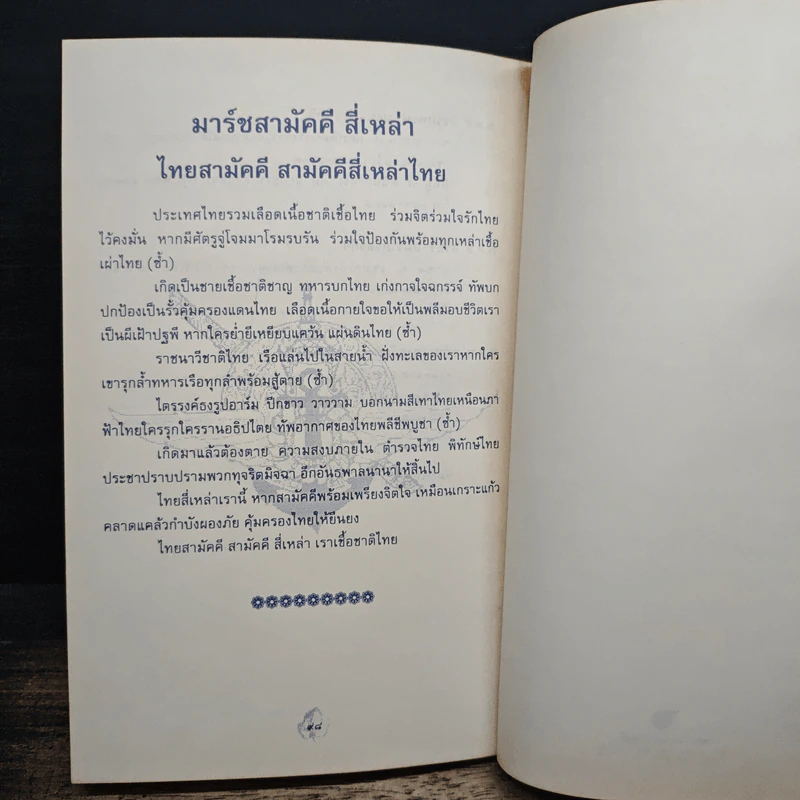 มาร์ชสามัคคี สี่เหล่า
ไทยสามัคคี สามัคคีสี่เหล่าไทย
ประเทศไทยรวมเลือดเนื้อชาติเชื้อไทย ร่วมจิตร่วมใจรักไทย
ไว้คงมั่น หากมีศัตรูจู่โจมมาโรมรบรัน ร่วมใจป้องกันพร้อมทุกเหล่าเชื้อ
เผ่าไทย (ซ้ำ)
เกิดเป็นชายเชื้อชาติชาญ ทหารบกไทย เก่งกาจใจฉกรรจ์ ทัพบก
ปกป้องเป็นรั้วคุ้มครองแดนไทย เลือดเนื้อกายใจขอให้เป็นพลีมอบชีวิตเรา
เป็นผีเฝ้าปฐพี หากใครย่ำยีเหยียบแคว้น แผ่นดินไทย (ซ้ำ)
ราชนาวีชาติไทย เรือแล่นไปในสายน้ำ ฝั่งทะเลของเราหากใคร
เขารุกล้ำทหารเรือทุกลำพร้อมสู้ตาย (ซ้ำ)
ไตรรงค์ธงรูปอาร์ม ปีกขาว วาววาม บอกนามสีเทาไทยเหนือนภา
ฟ้าไทยใครรุกใครรานอธิปไตย ทัพอากาศของไทยพลีชีพบูชา (ซ้ำ)
เกิดมาแล้วต้องตาย ความสงบภายใน ตำรวจไทย พิทักษ์ไทย
ประชาปราบปรามพวกทุจริตมิจฉา อีกอันธพาลนานาให้สิ้นไป
ไทยสี่เหล่าเรานี้ หากสามัคคีพร้อมเพรียงจิตใจ เหมือนเกราะแก้ว
คลาดแคล้วกำบังผองภัย คุ้มครองไทยให้ยืนยง
ไทยสามัคคี สามัคคี สี่เหล่า เราเชื้อชาติไทย
๙๘